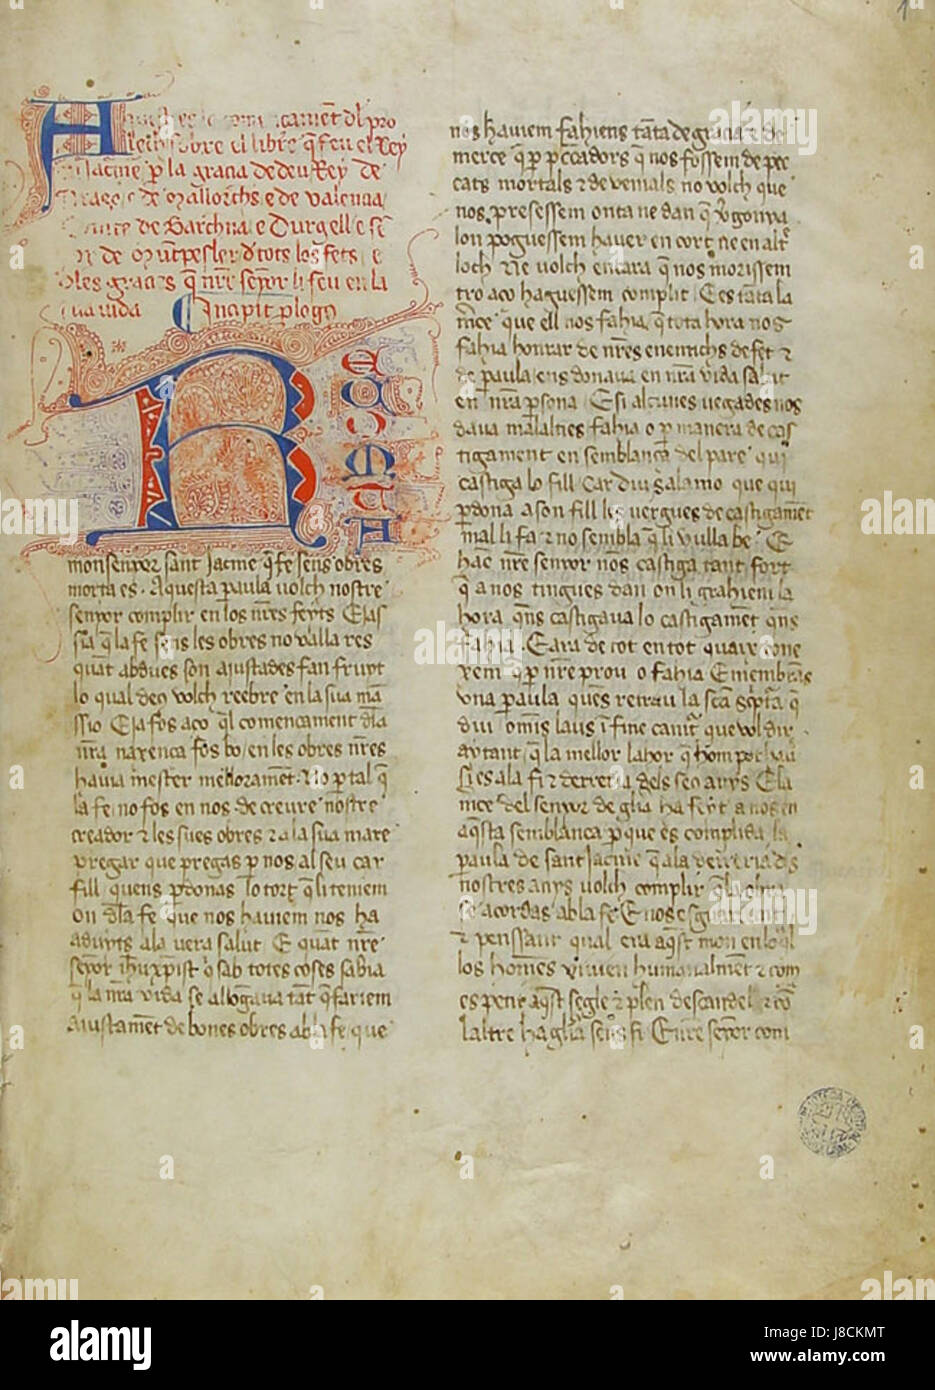 A
pro
sobre el libre q̃ feu el Rey
En Jacme p̲ la gracia de deu Rey de
e de Mallorchs e de valencia
de Barchna e Durgell e sẽ
de Mũtpesler d̃ tots los fets e
les gracies q̃ nr̃e senyor li feu en la
sua vida Encipit p̲logus
RETRAU MON
monsenyor sant Jacme q̃ fe sens obres
morta es. Aquesta paula volch nostre
senyor complir en los nr̃es feyts E jas
sia q̃ la fe sens les obres no valla res
quat abdues son ajustades fan fruyt
lo qual deu volch reebre en la sua mã
ssio E ja fos aço q̃l comencament d̃la
nr̃a naxenca fos bo, en les obres nr̃es
havia mester mellorament. No p̲ tal q̃
la fe no fos en nos de creure nostre
creador ⁊ les sues obres ⁊ a la sua mare
pregar que pregas p̲ nos al seu car
fill quens p̲donas lo tort q̃ li teniem
On d̃la fe que nos haviem nos ha
aduyts a la vera salut E quat nr̃e
senyor jh̃u xp̃ist q̃ sab totes coses sabia
q̃ la nr̃a vida se allongava tant q̃ fariem
ajustament de bones obres ab la fe que
nos haviem fahiens tanta de gracia ⁊ de
merce q̃ p̲ peccadors q̃ nos fossem de pec
cats mortals ⁊ de venials no volch que
nos presessem onta ne dan q̃ v̲gonya
lon poguessem haver en cort ne en altr̃
loch ⁊ Ne volch encara q̃ nos morissem
tro aço haguessem complit E es tãta la
mẽce que ell nos fahia q̃ tota hora nos
fahia honrar de nr̃es enemichs de fet ⁊
de paula, ens donava en nr̃a vida salut
en nr̃a p̲sona. E si alcunes vegades nos
dava malalties fahia o p̲ manera de cas
tigament en semblanca del pare qui
castiga lo fill Car diu Salamo que qui
p̲dona a son fill les vergues de castigamẽt
mal li fa ⁊ no sembla q̃ li vulla be E
hac nr̃e senyor nons castiga tant fort
q̃ a nos tingues dan on li grahiem la
hora qñs castigava lo castigament qñs
fahia. E ara de tot en tot quaix cone
xem q̃ p̲ nr̃e prou o fahia E membrans
vna paula quens retrau la scãta scp̃tr̃a q̃
diu om̃is laus ĩ fine canit̃ que vol dir
aytant q̃ la mellor labor q̃ hom pot hau
si es a la fi ⁊ derreria dels seus anys E la
mẽce del senyor de glĩa ha feyt a nos en
aq̃sta semblanca p̲ que es complida la
paula de sant Jacme q̃ a la derreria d̃s
nostres anys volch complir q̃ la obra
se acordas ab la fe E nos esguardant
⁊ pensant qual era aq̃st mon en lo q̃l
los homes viuien humanalment ⁊ com
es petit aq̃st segle ⁊ p̲ plen de scandel ⁊ cõ
laltre ha glĩa sens fi E nr̃e senyor com
alamy
alamy
Image ID: J8CKMT
www.alamy.com